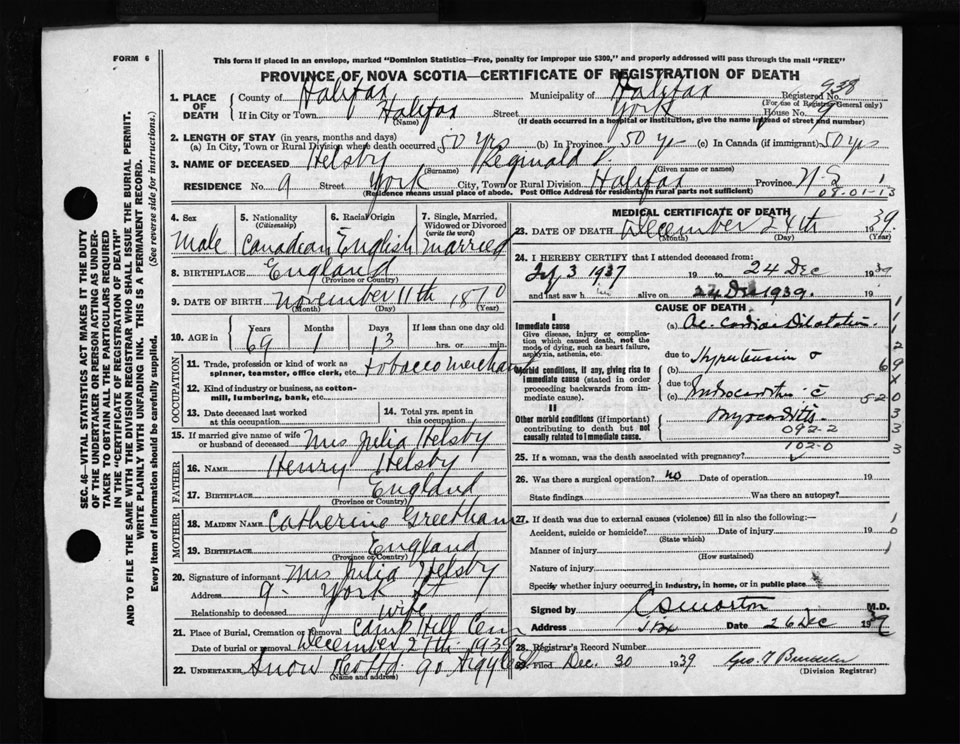 FORM 6
This form if placed in an envelope, marked "Dominion Statistics—Free, penalty for improper use $300," and properly addressed will pass through the mail "FREE"
PROVINCE OF NOVA SCOTIA—CERTIFICATE OF REGISTRATION OF DEATH
SEC. 46—VITAL STATISTICS ACT MAKES IT THE DUTY
OF THE UNDERTAKER OR PERSON ACTING AS UNDER-
TAKER TO OBTAIN ALL THE PARTICULARS REQUIRED
IN THE "CERTIFICATE OF REGISTRATION OF DEATH"
AND TO FILE THE SAME WITH THE DIVISION REGISTRAR WHO SHALL ISSUE THE BURIAL PERMIT.
WRITE PLAINLY WITH UNFADING INK. THIS IS A PERMANENT RECORD.
Every item of Information should be carefully supplied. (See reverse side for instructions.)
1. PLACE OF DEATH County of Halifax Municipality of Halifax Registered No. 938
(For use of Registrar General only)
If in City or Town Halifax Street York House No. 9
(Name) (If death occurred in a hospital or institution, give the name instead of street and number)
2. LENGTH OF STAY (in years, months and days)
(a) In City, Town or Rural Division where death occurred 50 yrs (b) In Province 50 yrs (c) In Canada (if immigrant) 50 yrs
3. NAME OF DECEASED Helsby Reginald
(Surname) (Given name or names)
RESIDENCE No. 9 Street York City, Town or Rural Division Halifax Province N.S.
(Residence means usual place of abode. Post Office Address for residents in rural parts not sufficient) 08-01-13
4. Sex Male
5. Nationality (Citizenship) Canadian
6. Racial Origin English
7. Single, Married, Widowed or Divorced (write the word) Married
8. BIRTHPLACE England
(Province or Country)
9. DATE OF BIRTH November 11th 1870
(Month) (Day) (Year)
10. AGE in Years Months Days If less than one day old
69 1 13 hrs. or min.
OCCUPATION
11. Trade, profession or kind of work as spinner, teamster, office clerk, etc. tobacco merchant
12. Kind of industry or business, as cotton-mill, lumbering, bank, etc.
13. Date deceased last worked at this occupation
14. Total yrs. spent in this occupation
15. If married give name of wife or husband of deceased Mrs Julia Helsby
FATHER
16. NAME Henry Helsby
17. BIRTHPLACE England
(Province or Country)
MOTHER
18. MAIDEN NAME Catherine Greetham
19. BIRTHPLACE England
(Province or Country)
20. Signature of informant Mrs Julia Helsby
Address 9 - York St
Relationship to deceased wife
21. Place of Burial, Cremation or Removal Camp Hill Cem
Date of burial or removal December 27th 1939
22. UNDERTAKER Snow & Co Ltd 90 Argyle St
(Name and address)
MEDICAL CERTIFICATE OF DEATH
23. DATE OF DEATH December 24th 1939.
(Month) (Day) (Year)
24. I HEREBY CERTIFY that I attended deceased from:
3 1937 19 to 24 Dec 1939
and last saw him alive on 24 Dec 1939. 19
CAUSE OF DEATH
I
Immediate cause
Give disease, injury or complication which caused death, not the mode of dying, such as heart failure, asphyxia, asthenia, etc.
(a) Ac. Cardiac Dilatation
due to
Morbid conditions, if any, giving rise to immediate cause (stated in order proceeding backwards from immediate cause).
(b) Hypertension &
due to
(c) Endocarditis c̄
Myocarditis
II
Other morbid conditions (if important) contributing to death but not causally related to immediate cause.
092-2
102-0
25. If a woman, was the death associated with pregnancy?
26. Was there a surgical operation? no Date of operation 19
State findings Was there an autopsy?
27. If death was due to external causes (violence) fill in also the following:—
Accident, suicide or homicide? Date of injury 19
(State which)
Manner of injury
(How sustained)
Nature of injury
Specify whether injury occurred in industry, in home, or in public place
Signed by C S Morton M.D.
Address Hfx Date 26 Dec 1939
28. Registrar's Record Number
29. Filed Dec. 30 1939 Geo.
(Division Registrar)